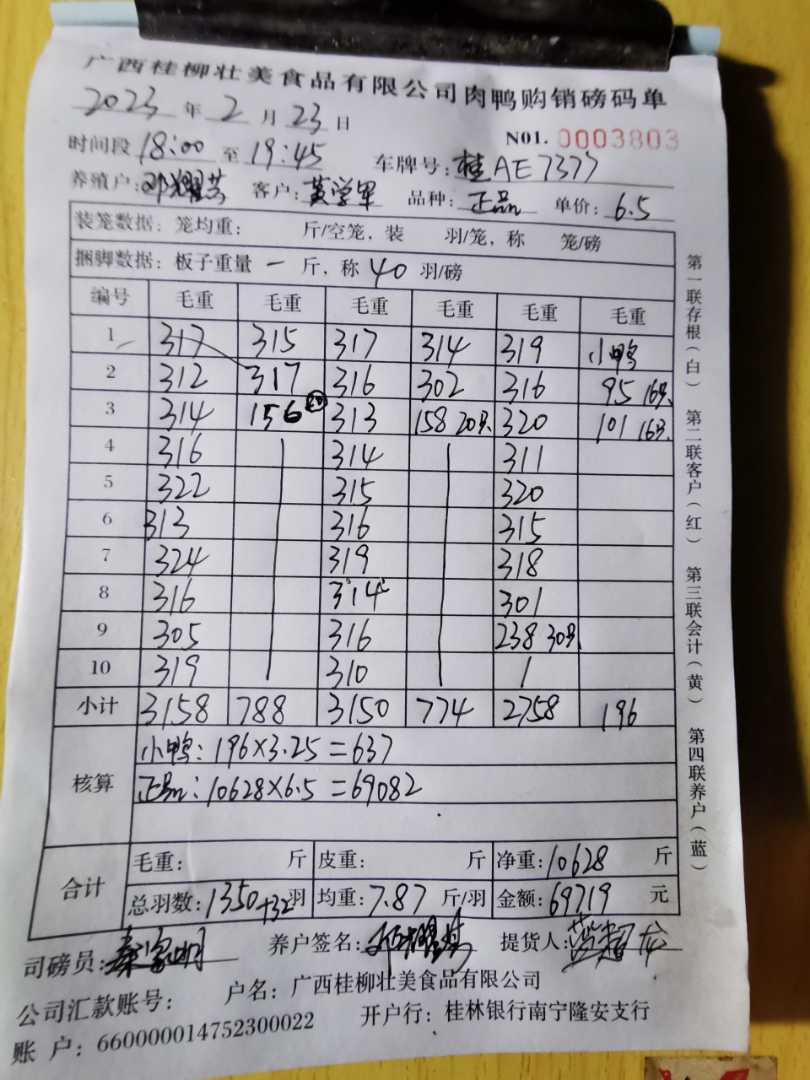 广西桂柳壮美食品有限公司肉鸭购销磅码单
2023 年 2 月 23 日
N01. 0003803
时间段 18:00 至 19:45 车牌号: 桂AE7377
养殖户: 邓耀芬 客户: 黄学军 品种: 正品 单价: 6.5
装笼数据: 笼均重: 斤/空笼, 装 羽/笼, 称 笼/磅
捆脚数据: 板子重量 一 斤, 称 40 羽/磅
编号 毛重 毛重 毛重 毛重 毛重 毛重
1 317 315 317 314 319 小鸭
2 312 317 316 302 316 95 16只
3 314 156 20 313 158 20只 320 101 16只
4 316 314 311
5 322 315 320
6 313 316 315
7 324 319 318
8 316 314 301
9 305 316 238 30只
10 319 310
小计 3158 788 3150 774 2758 196
核算
小鸭: 196×3.25=637
正品: 10628×6.5=69082
合计
毛重: 斤 皮重: 斤 净重: 10628 斤
总羽数: 1350+32羽 均重: 7.87 斤/羽 金额: 69719 元
司磅员: 养户签名: 提货人:
公司汇款账号: 户名: 广西桂柳壮美食品有限公司
账 户: 660000014752300022 开户行: 桂林银行南宁隆安支行
第一联存根(白) 第二联客户(红) 第三联会计(黄) 第四联养户(蓝)